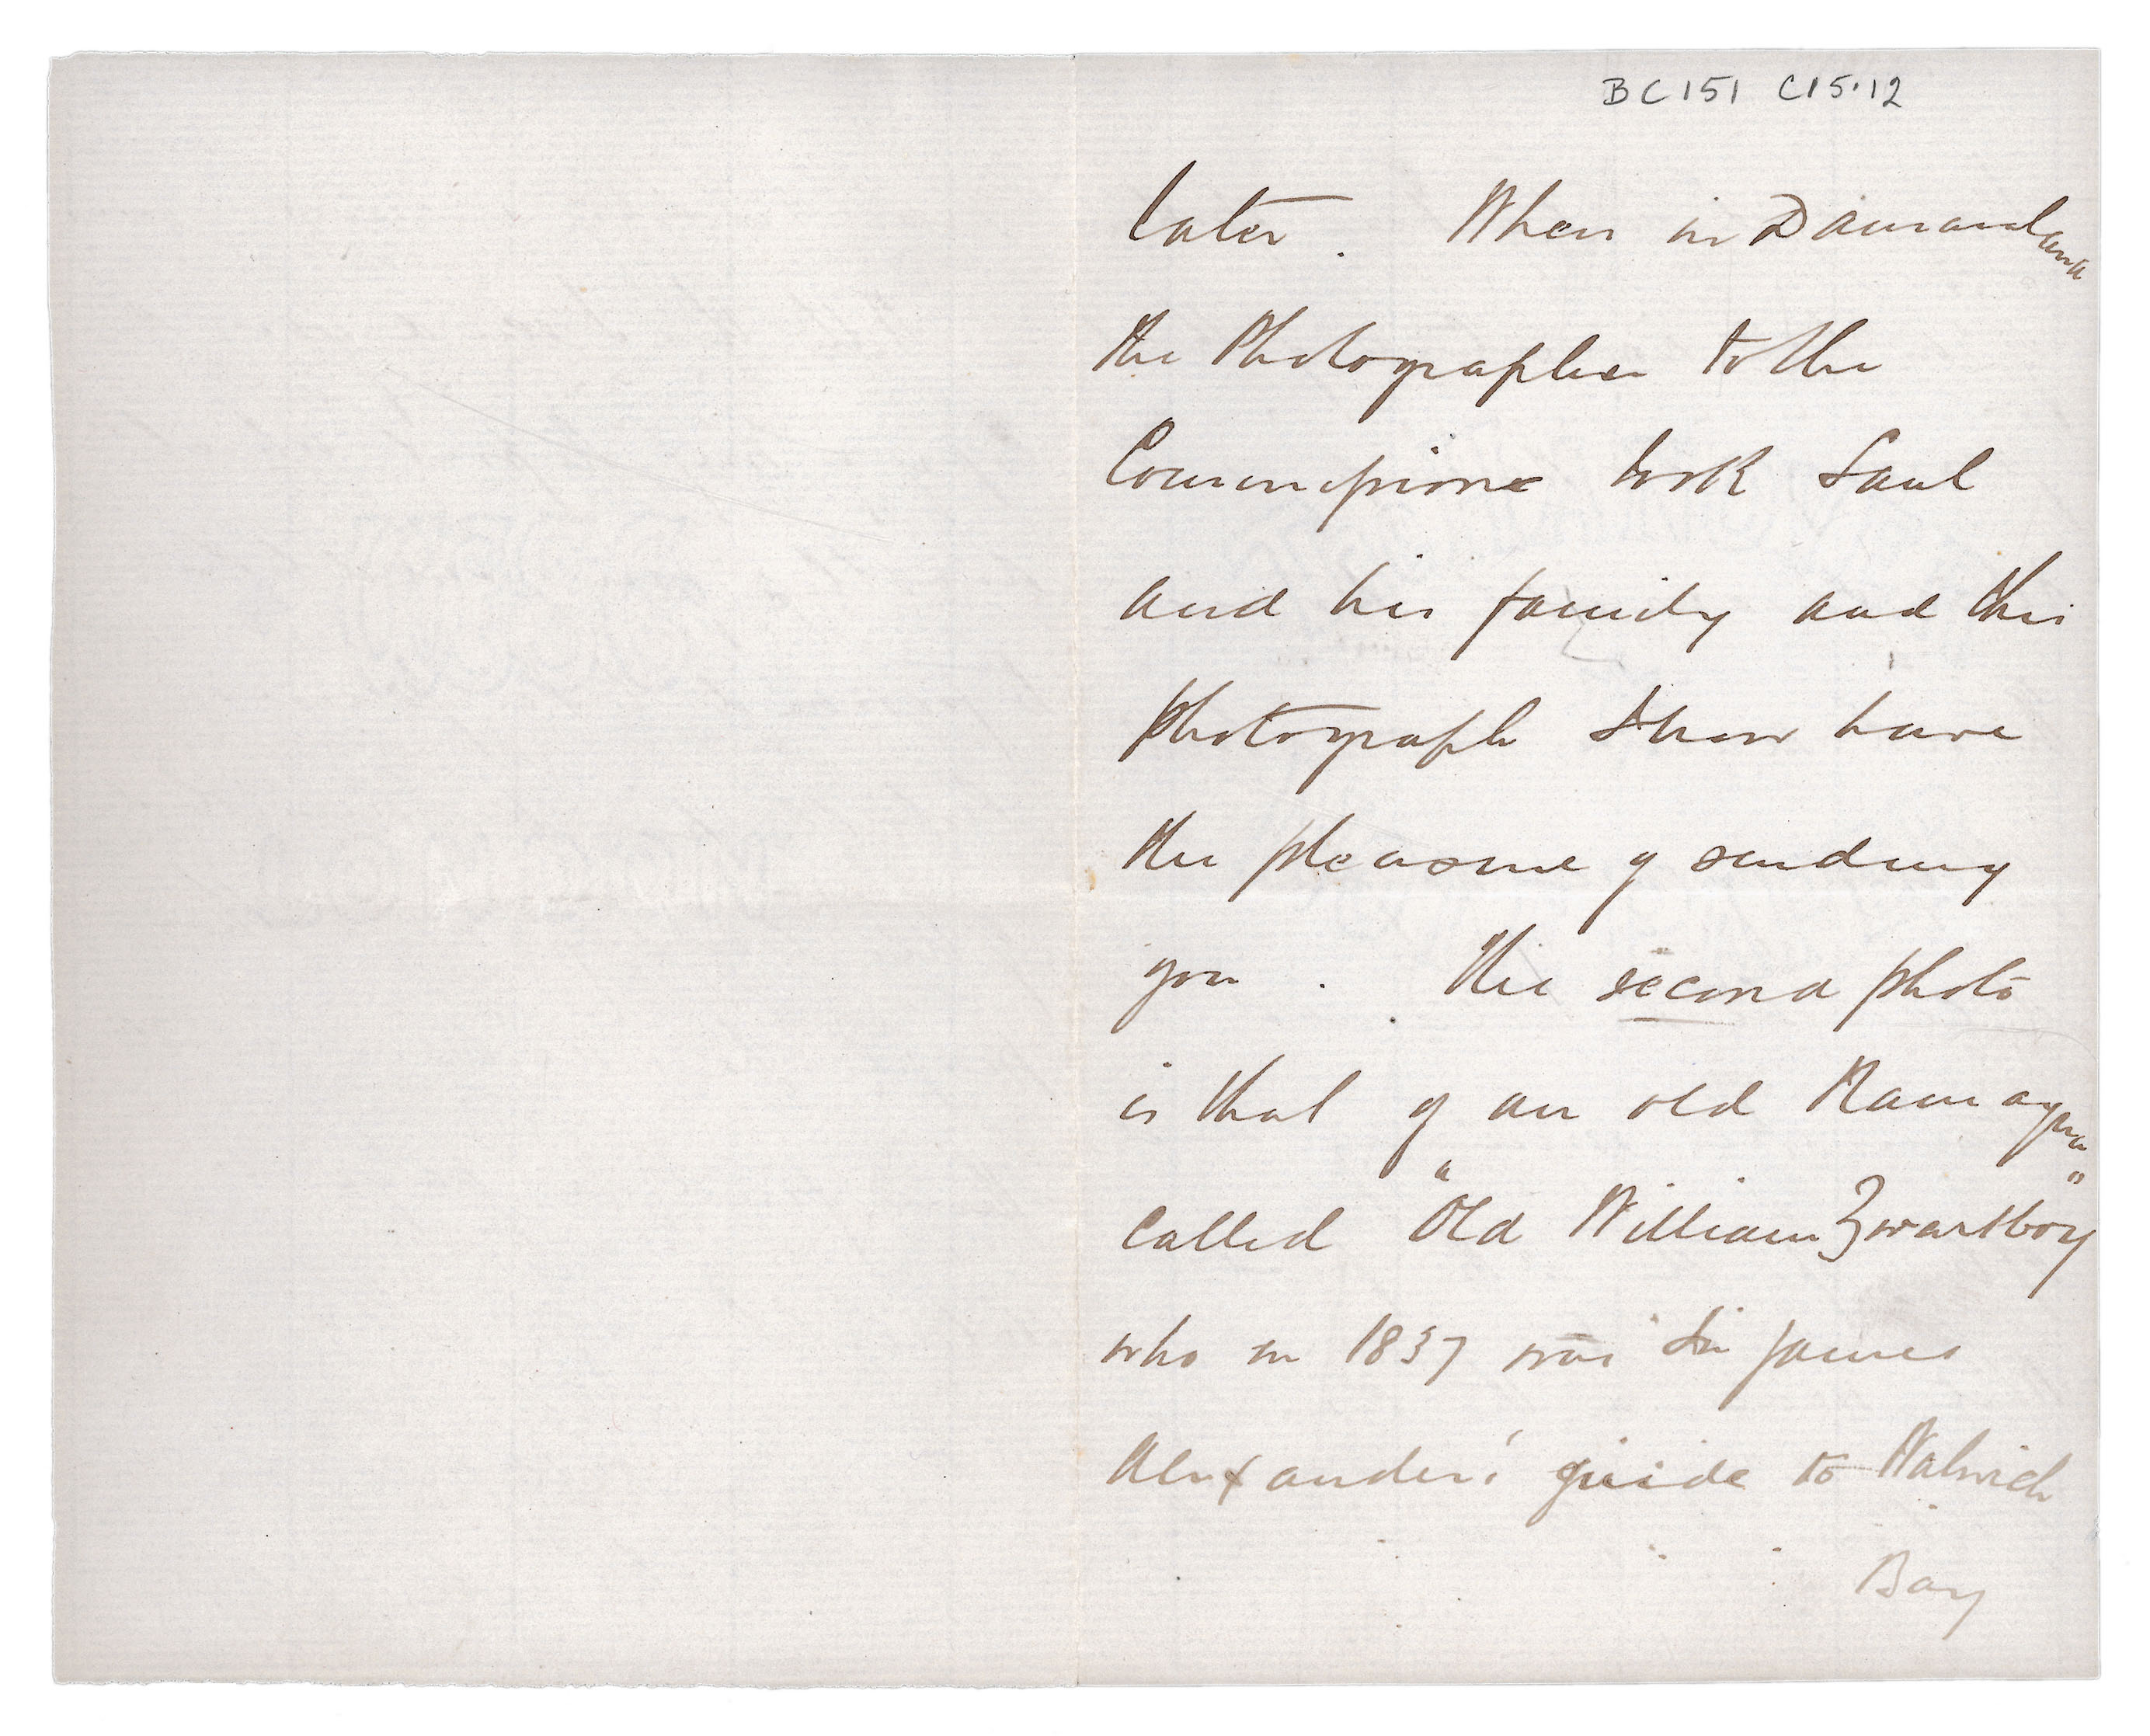 BC151 C15.12
later. When in Damaraland
the Photographer to the
Commission took Saul
and his family and this
photograph I now have
the pleasure of sending
you. The second photo
is that of an old Namaqua
called "Old William Zwartbooy"
who in 1837 was Sir James
Alexander's guide to Walwich
Bay